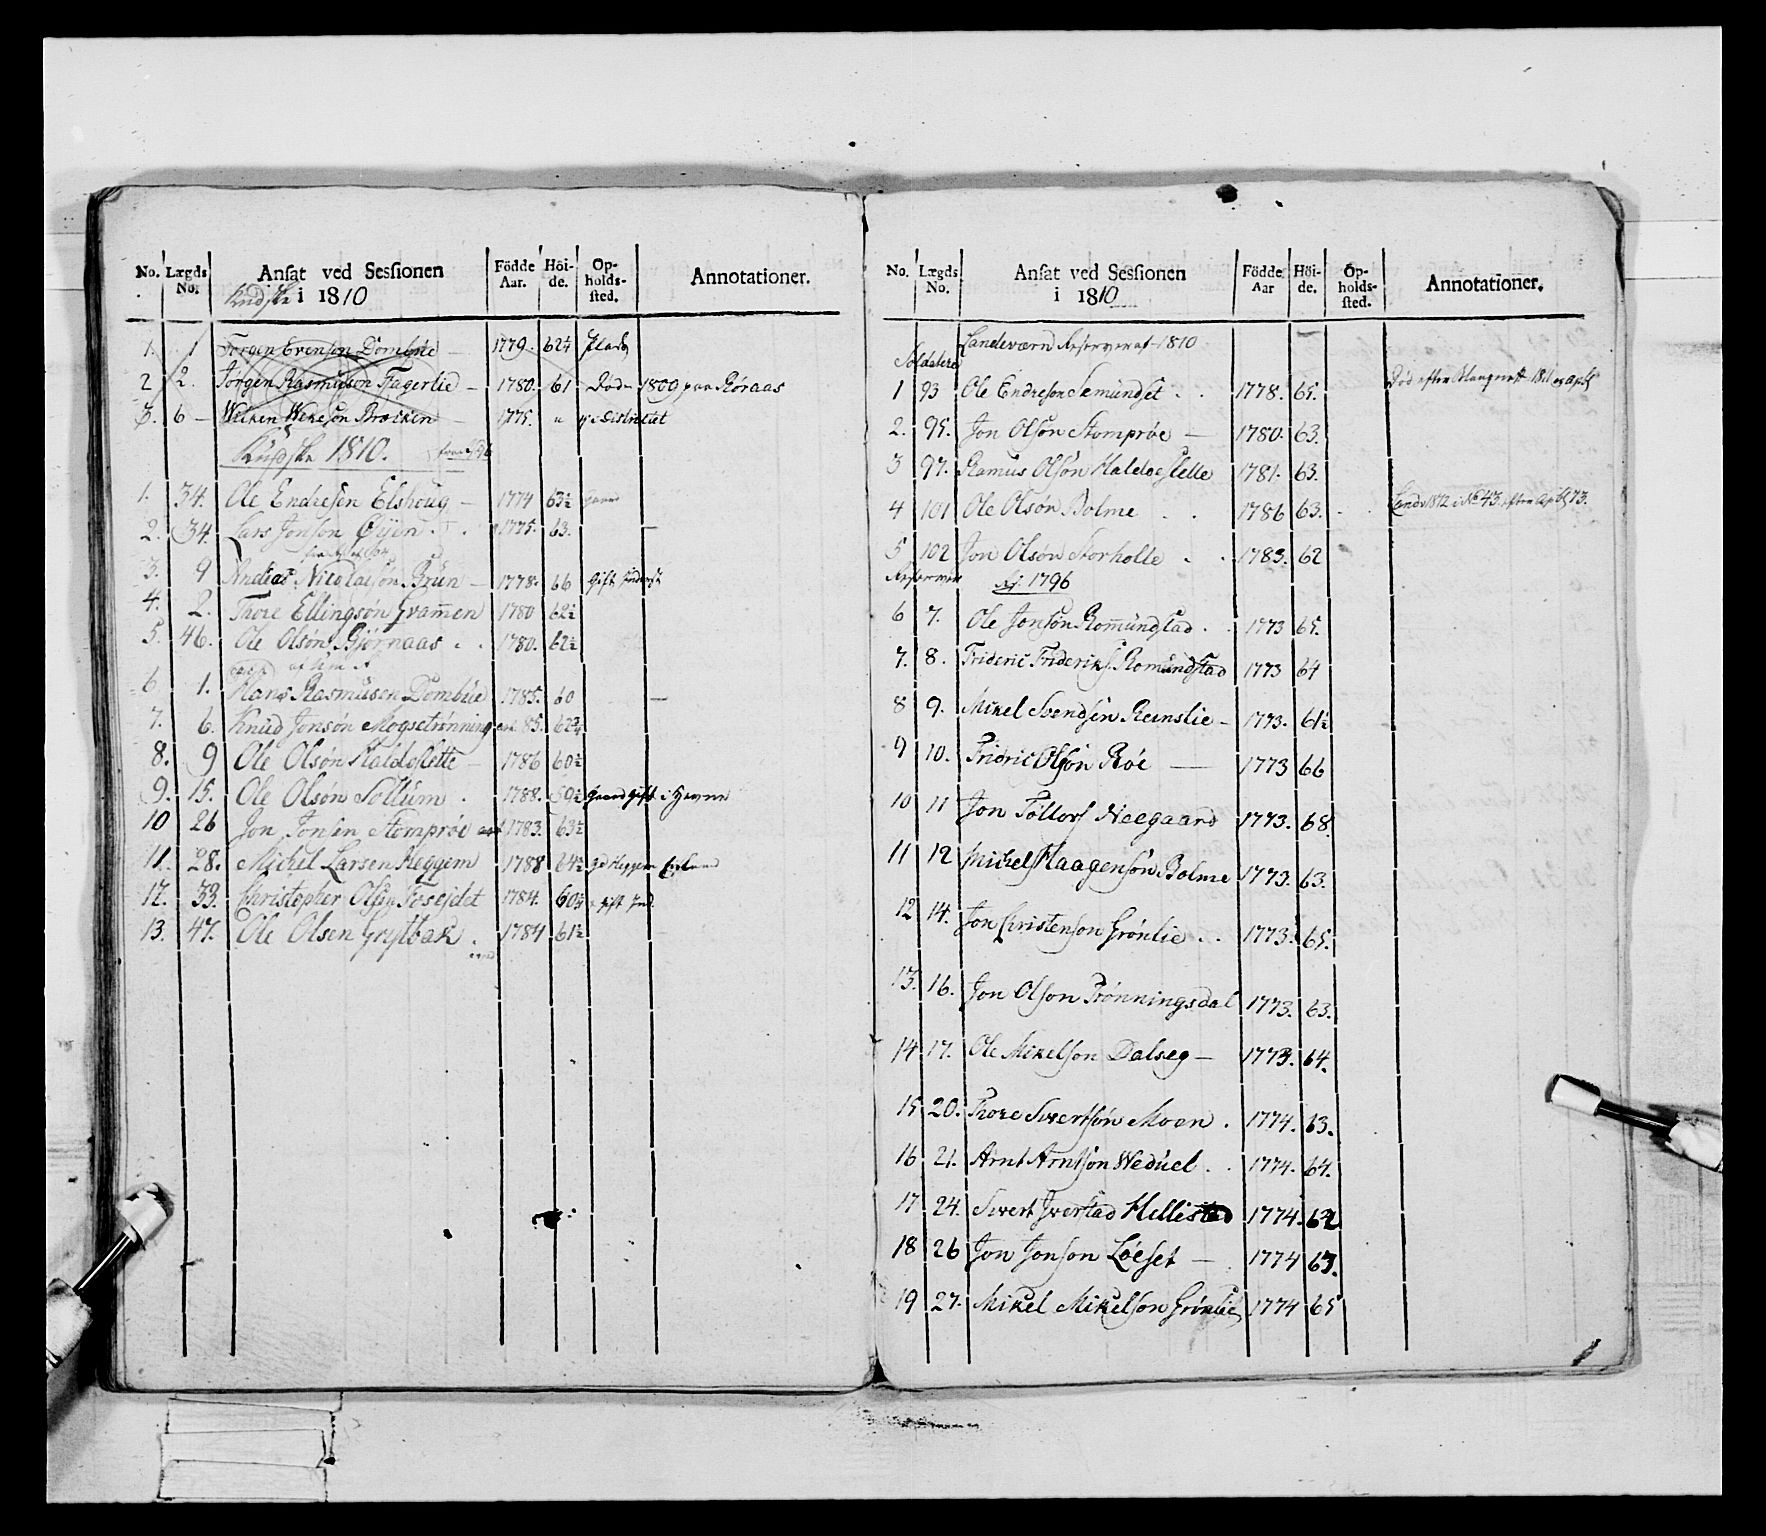 No. Lægds No. Ansat ved Sessionen i 1810 Födde Aar. Höi-de. Op-holds-sted. Annotationer.
Kudske
1. 1 Jörgen Evensøn Dombüe - 1779. 62¼
2 2. Jörgen Rasmusøn Fagerlie - 1780. 61 Död 1809 paa Röraas
3. 6 - 1775. " i Districtet
Kudske 1810.
1. 34. Ole Endresen Elshoug - 1774 63½
2. 34. Lars Jonson Øÿen . 1775. 63. -
3. 9 Andreas Nicolaisøn Brün - 1778. 66 Gift Inderst
4. 2. Thore Ellingsøn Gram̄en 1780 62½
5. 46. Ole Olsøn Björnaas . . 1780. 62½
6 1. Hans Rasmusen Dombüe 1785. 60 -
7. 6. Knud Jonsøn Mogsetrønning 85. 62¾
8. 9 Ole Olsøn Haldoslette - 1786 60½
9. 15. Ole Olsøn Sollüm . 1788. 59½ Gaard Gift i Hevne
10 26 Jon Jonsen Stomprøe 1783. 63½
11. 28. Michel Larsen Heggem 1788 64½ Heggem
12. 33. Christopher Olsen 1784. 60¾ gift Ind.
13. 47. Ole Olsen Grytbak . 1784 61½
No. Lægds No. Ansat ved Sessionen i 1810 Födde Aar Höi-de. Op-holds-sted. Annotationer.
Landeværn Reserver af 1810
Soldatere
1 93 Ole Endreson Semundset . . 1778. 65. Död efter
2. 95. Jon Olsön Stomprøe - 1780. 63.
3 97. Ramus Olsön Haldoeslette 1781. 63.
4 101 Ole Olsön Bolme . . 1786 63.
5 102 Jon Olsøn Storholte . . 1783. 62
Reserver Af 1796
6 7. Ole Jonsön Rom̄undstad . . 1773 65.
7. 8. Frideric Frideriks. Romundstad 1773 64
8 9. Mikel Svendsen Reinslie - 1773. 61½
9 10. Fridric Olsön Röe - 1773 66
10 11 Jon Tollevs Neegaard 1773. 68.
11 12 Michel Haagensön Bolme 1773. 63.
12 14. Jon Christenson Grönlie . . 1773. 65.
13. 16. Jon Olson Trönningsdal 1773. 63.
14 17. Ole Mikelson Dalseg - 1773. 64.
15 20. Thore Sivertsön Moen . 1774. 63.
16 21. Arnt Arntson Wedüel . . 1774. 64.
17 24. Sivert Iverstad Hellestad 1774. 62
18 26 Jon Jonson Löeset - 1774 63.
19 27. Mikel Mikelson Grönlie 1774 65